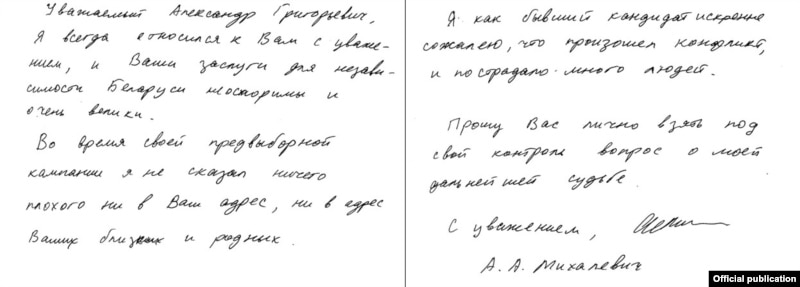 Уважаемый Александр Григорьевич,
Я всегда относился к Вам с уваже-
нием, и Ваши заслуги для незави-
симости Беларуси неоспоримы и
очень велики.
Во время своей предвыборной
кампании я не сказал ничего
плохого ни в Ваш адрес, ни в адрес
Ваших близких и родных.
Я как бывший кандидат искренне
сожалею, что произошел конфликт,
и пострадало много людей.
Прошу Вас лично взять под
свой контроль вопрос о моей
дальнейшей судьбе.
С уважением,
А. А. Михалевич
Official publication